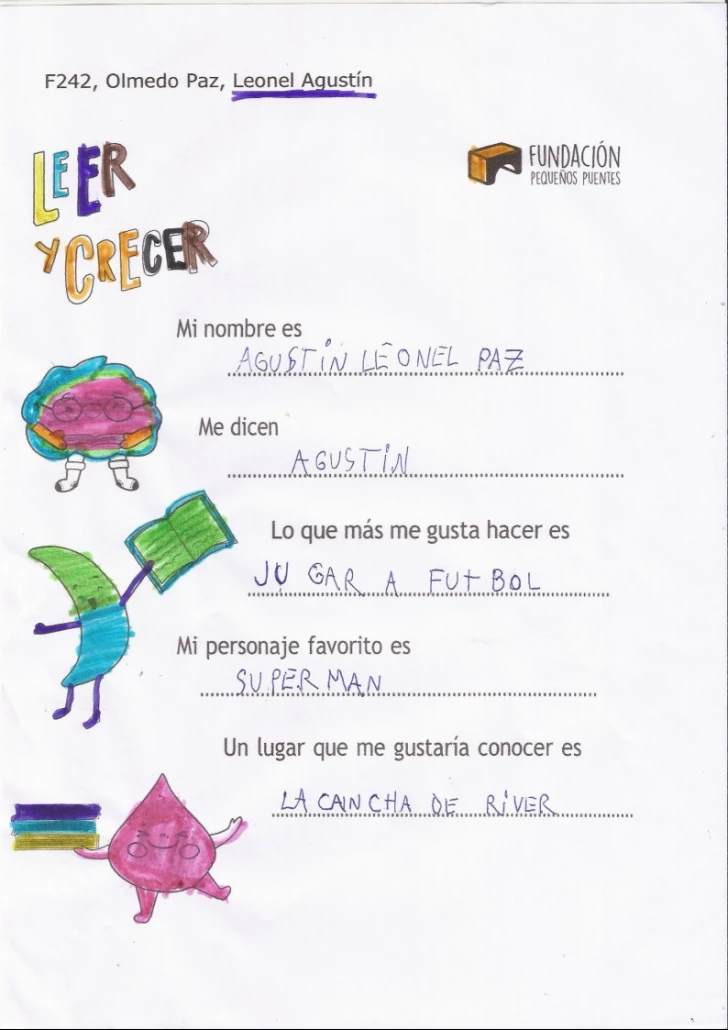 F242, Olmedo Paz, Leonel Agustín
LEER
Y CRECER
FUNDACIÓN
PEQUEÑOS PUENTES
Mi nombre es
AGUSTIN LEONEL PAZ
Me dicen
AGUSTIN
Lo que más me gusta hacer es
JU GAR A FUTBOL
Mi personaje favorito es
SUPERMAN
Un lugar que me gustaría conocer es
LA CANCHA DE RIVER